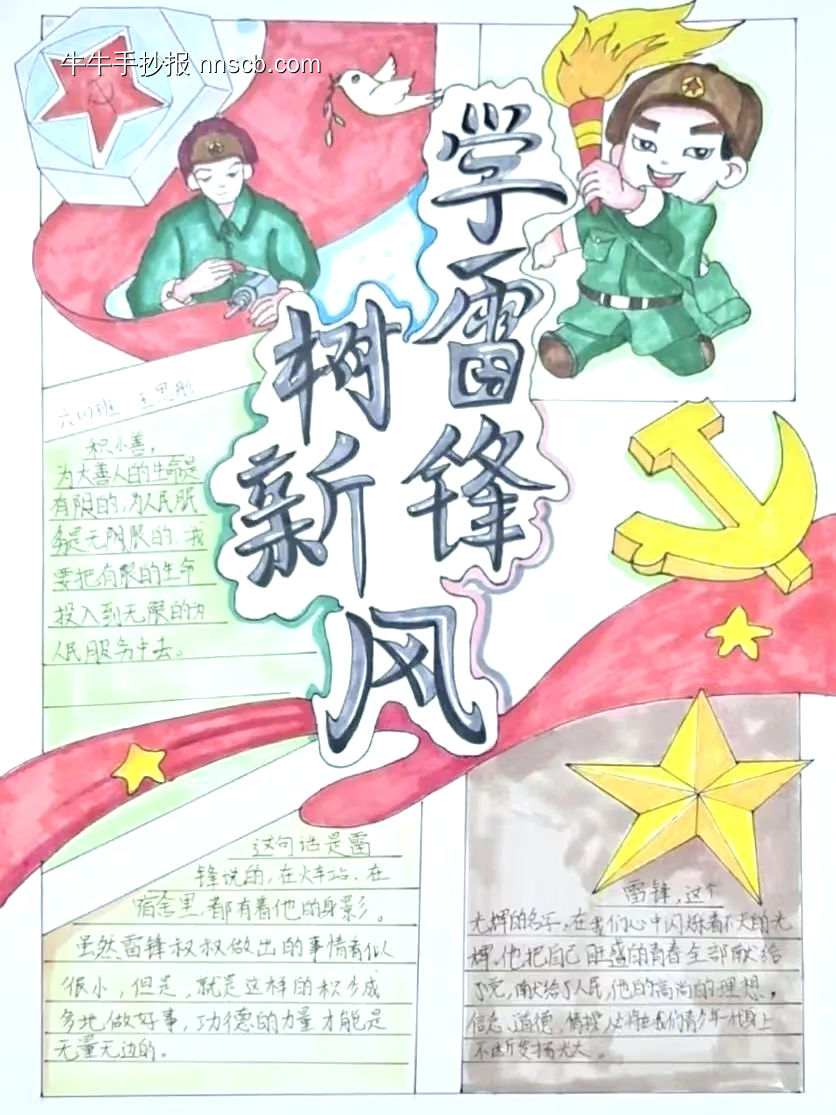 牛牛手抄报 nnscb.com
学雷锋
树新风
积小善,
为大善人的生命是
有限的,为人民服
务是无限的,我
要把有限的生命
投入到无限的为
人民服务中去。
这句话是雷
锋说的,在火车站、在
宿舍里,都有着他的身影。
虽然雷锋叔叔做出的事情看似
很小,但是,就是这样的积少成
多地做好事,功德的力量才能是
无量无边的。
雷锋,这个
光辉的名字,在我们心中闪烁着不灭的光
辉。他把自己旺盛的青春全部献给
了党,献给了人民,他的高尚的理想,
信念、道德、情操
我们青少年一代身上
不断发扬光大。